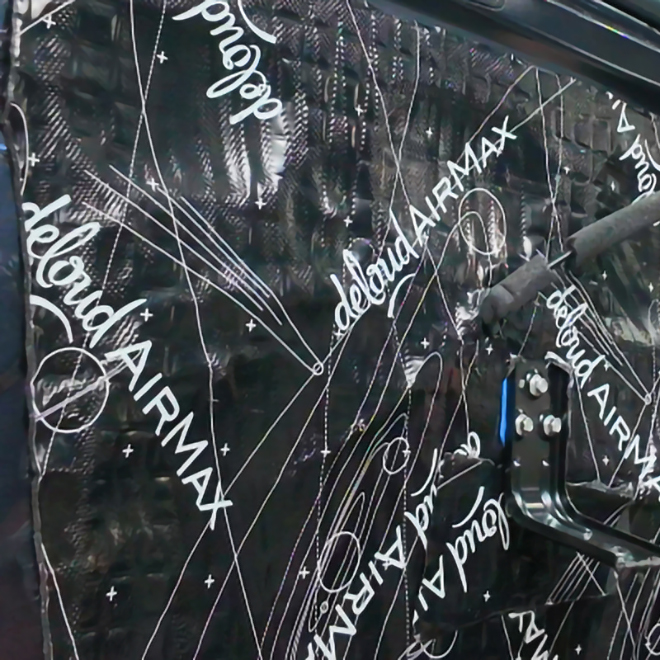 deloud
deloud AIRMAX
deloud AIRMAX
deloud AIRMAX
ud AIRMA
loud Ai